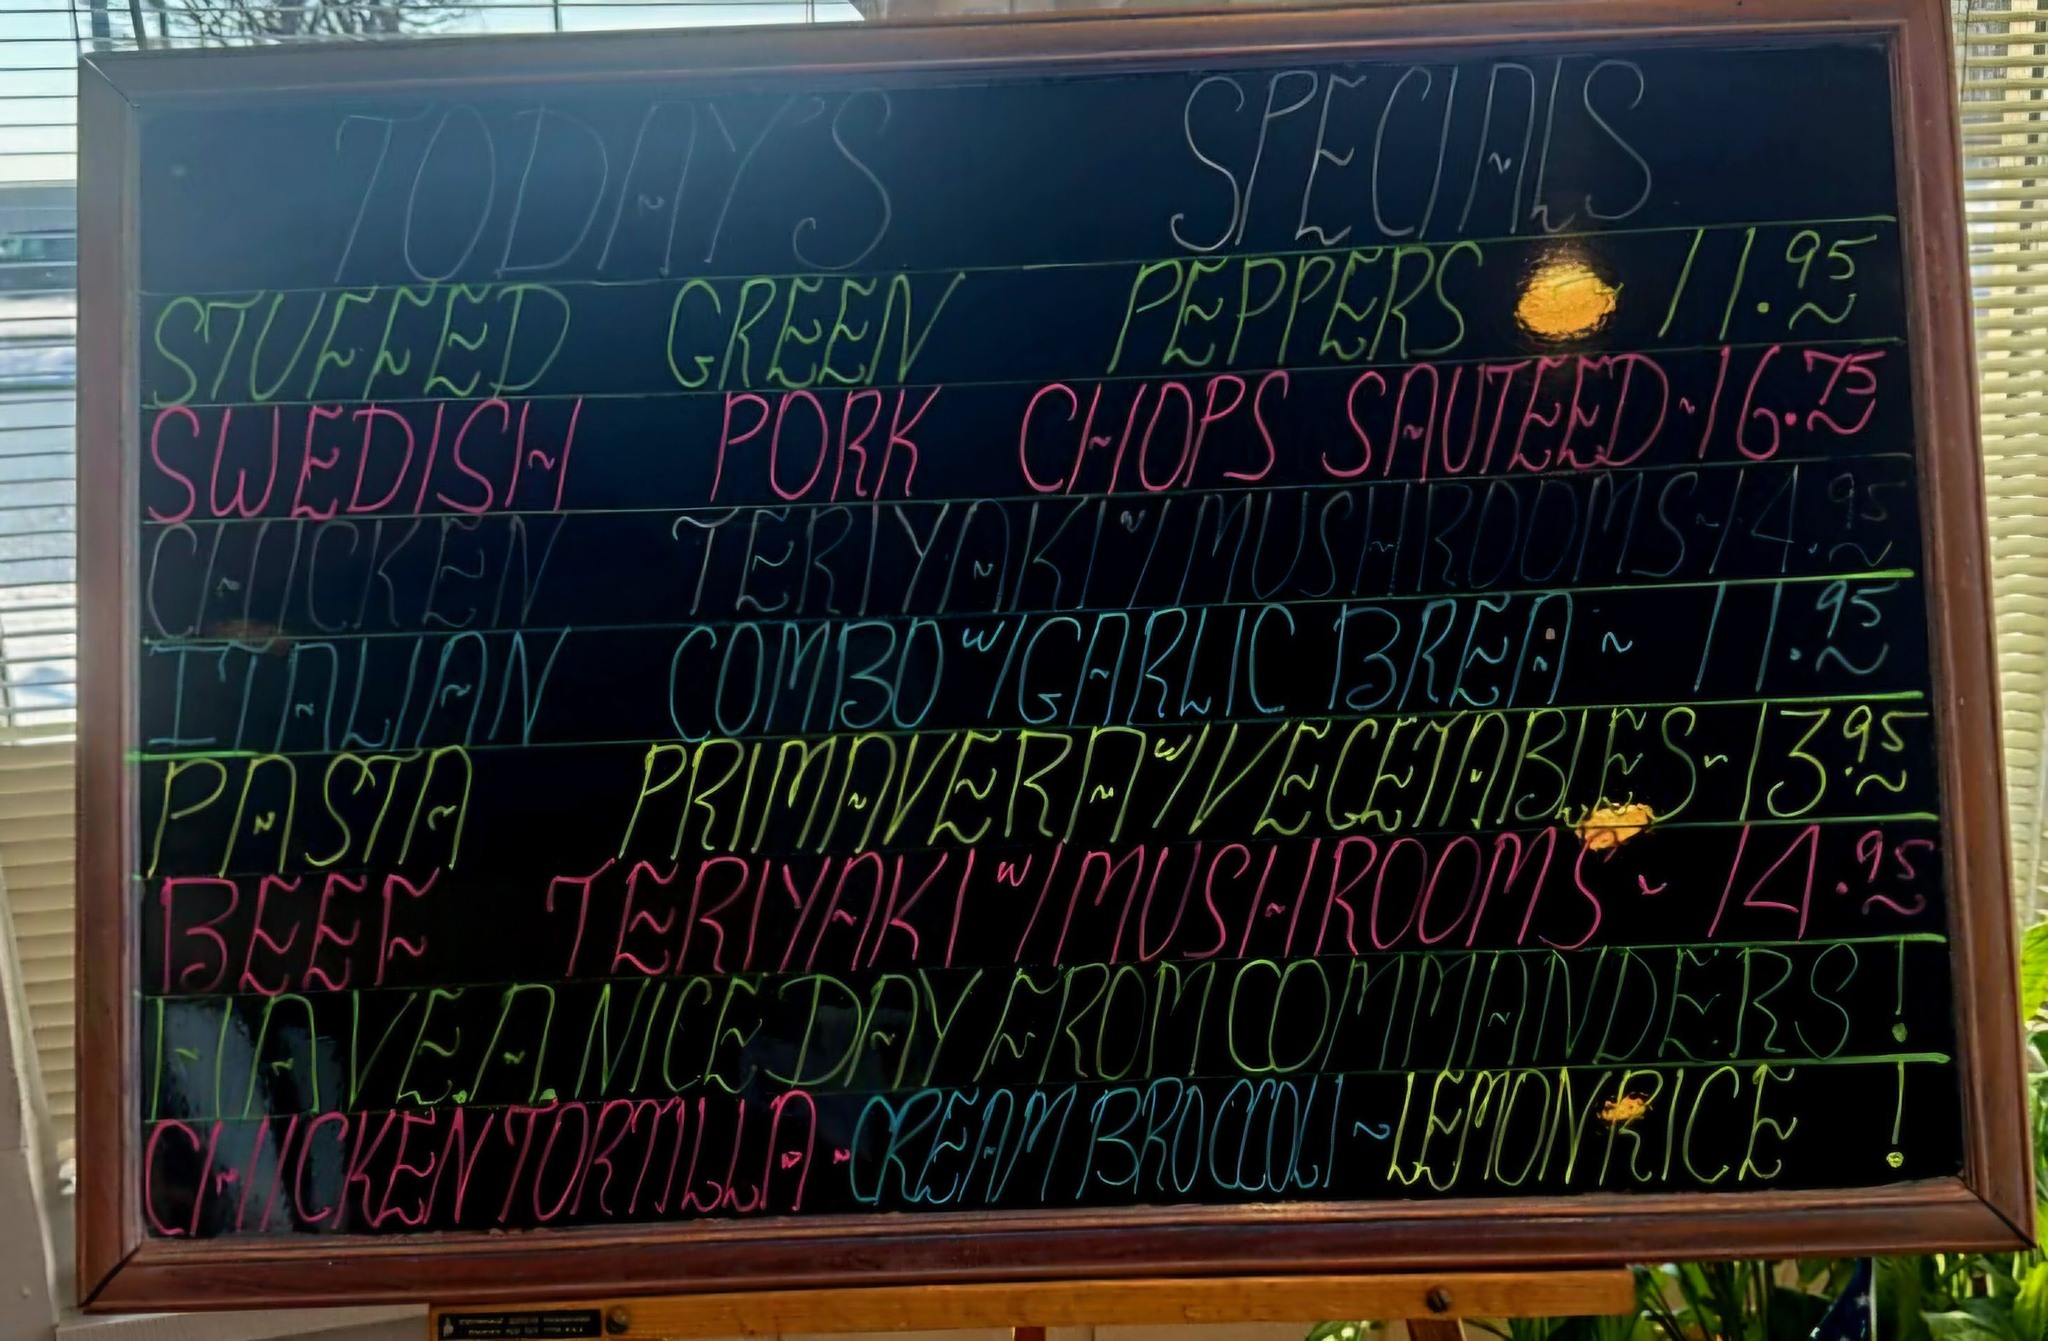 TODAY'S SPECIALS
STUFFED GREEN PEPPERS 11.95
SWEDISH PORK CHOPS SAUTEED - 16.75
CHICKEN TERIYAKI W/ MUSHROOMS - 14.95
ITALIAN COMBO W/ GARLIC BREA - 11.95
PASTA PRIMAVERA W/ VEGETABLES - 13.95
BEEF TERIYAKI W/ MUSHROOMS - 14.95
HAVE.A.NICE DAY FROM COMMANDERS!
CHICKEN TORTILLA - CREAM BROCCOLI - LEMON RICE !